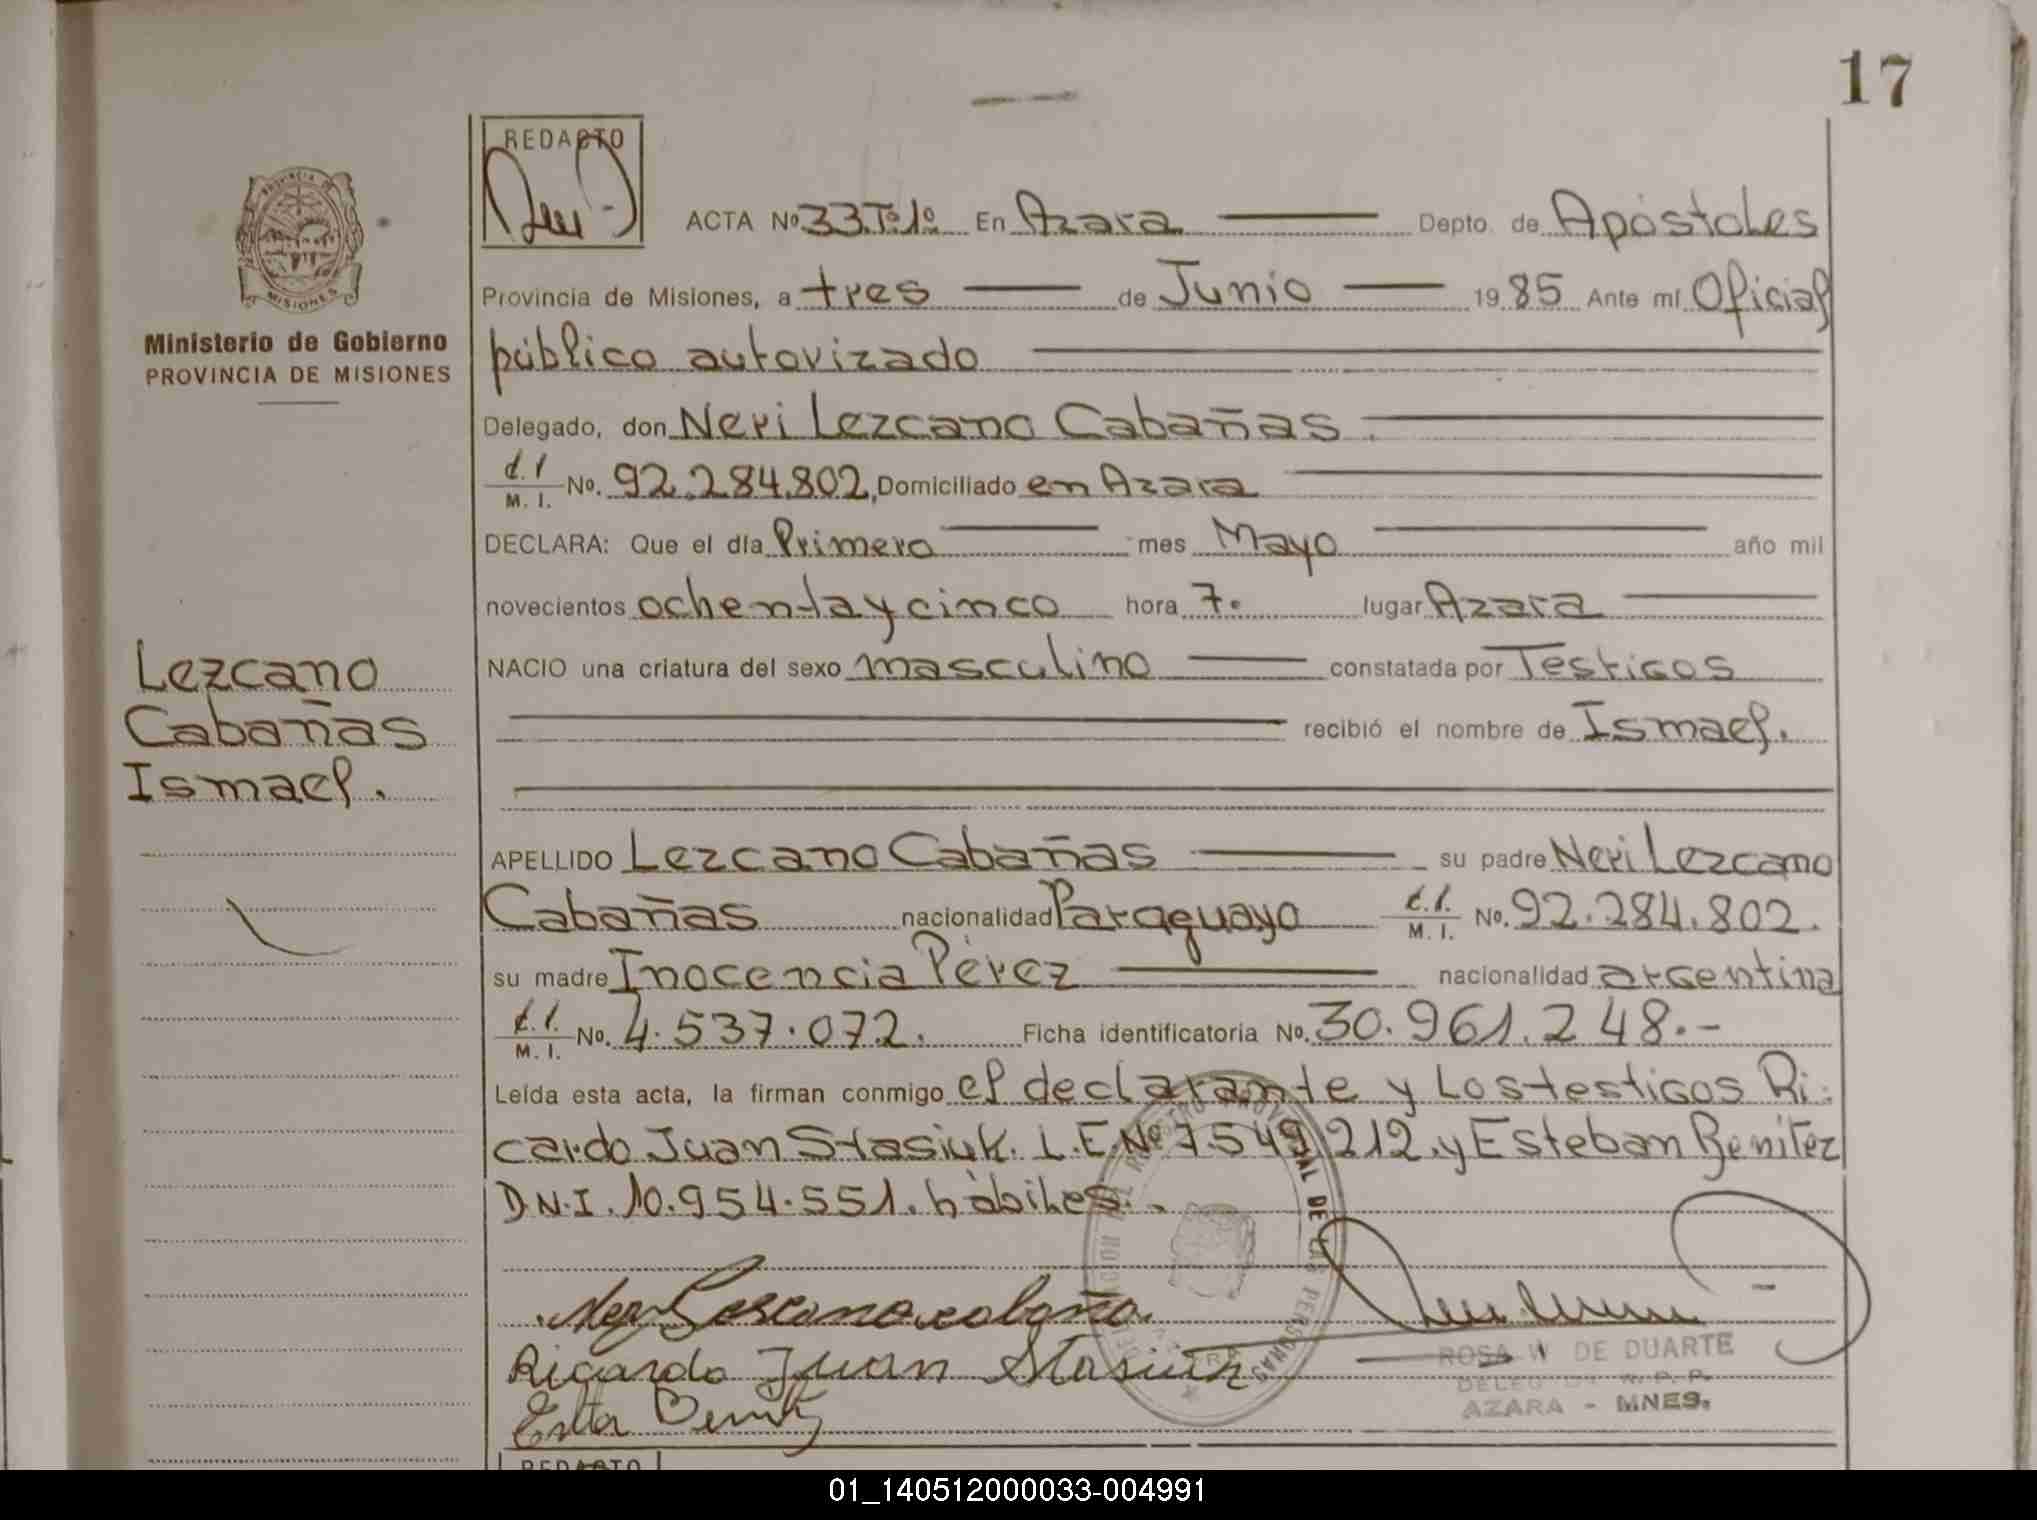 17
REDACTO
PROVINCIA DE
MISIONES
Ministerio de Gobierno
PROVINCIA DE MISIONES
Lezcano
Cabañas
Ismael.
ACTA Nº 33.Tº.1º. En Azara Depto. de Apóstoles
Provincia de Misiones, a tres de Junio 1985 Ante mí Oficial
público autorizado
Delegado, don Neri Lezcano Cabañas.
C.I. M. I. No. 92.284.802, Domiciliado en Azara
DECLARA: Que el día Primero mes Mayo año mil
novecientos ochentaycinco hora 7. lugar Azara
NACIO una criatura del sexo masculino constatada por Testigos
recibió el nombre de Ismael.
APELLIDO Lezcano Cabañas su padre Neri Lezcano
Cabañas nacionalidad Paraguayo C.I. M. I. No. 92.284.802.
su madre Inocencia Pérez nacionalidad argentina
C.I. M. I. No. 4.537.072. Ficha identificatoria No. 30.961.248.-
Leída esta acta, la firman conmigo el declarante y Los testigos Ri:
cardo Juan Stasiuk. L.E.Nº 7.549.212. y Esteban Benitez
D.N.I. 10.954.551. hàbiles.
Ricardo Juan Stasiuk
ROSA W DE DUARTE
AZARA - MNES.
REDACTO
01_140512000033-004991